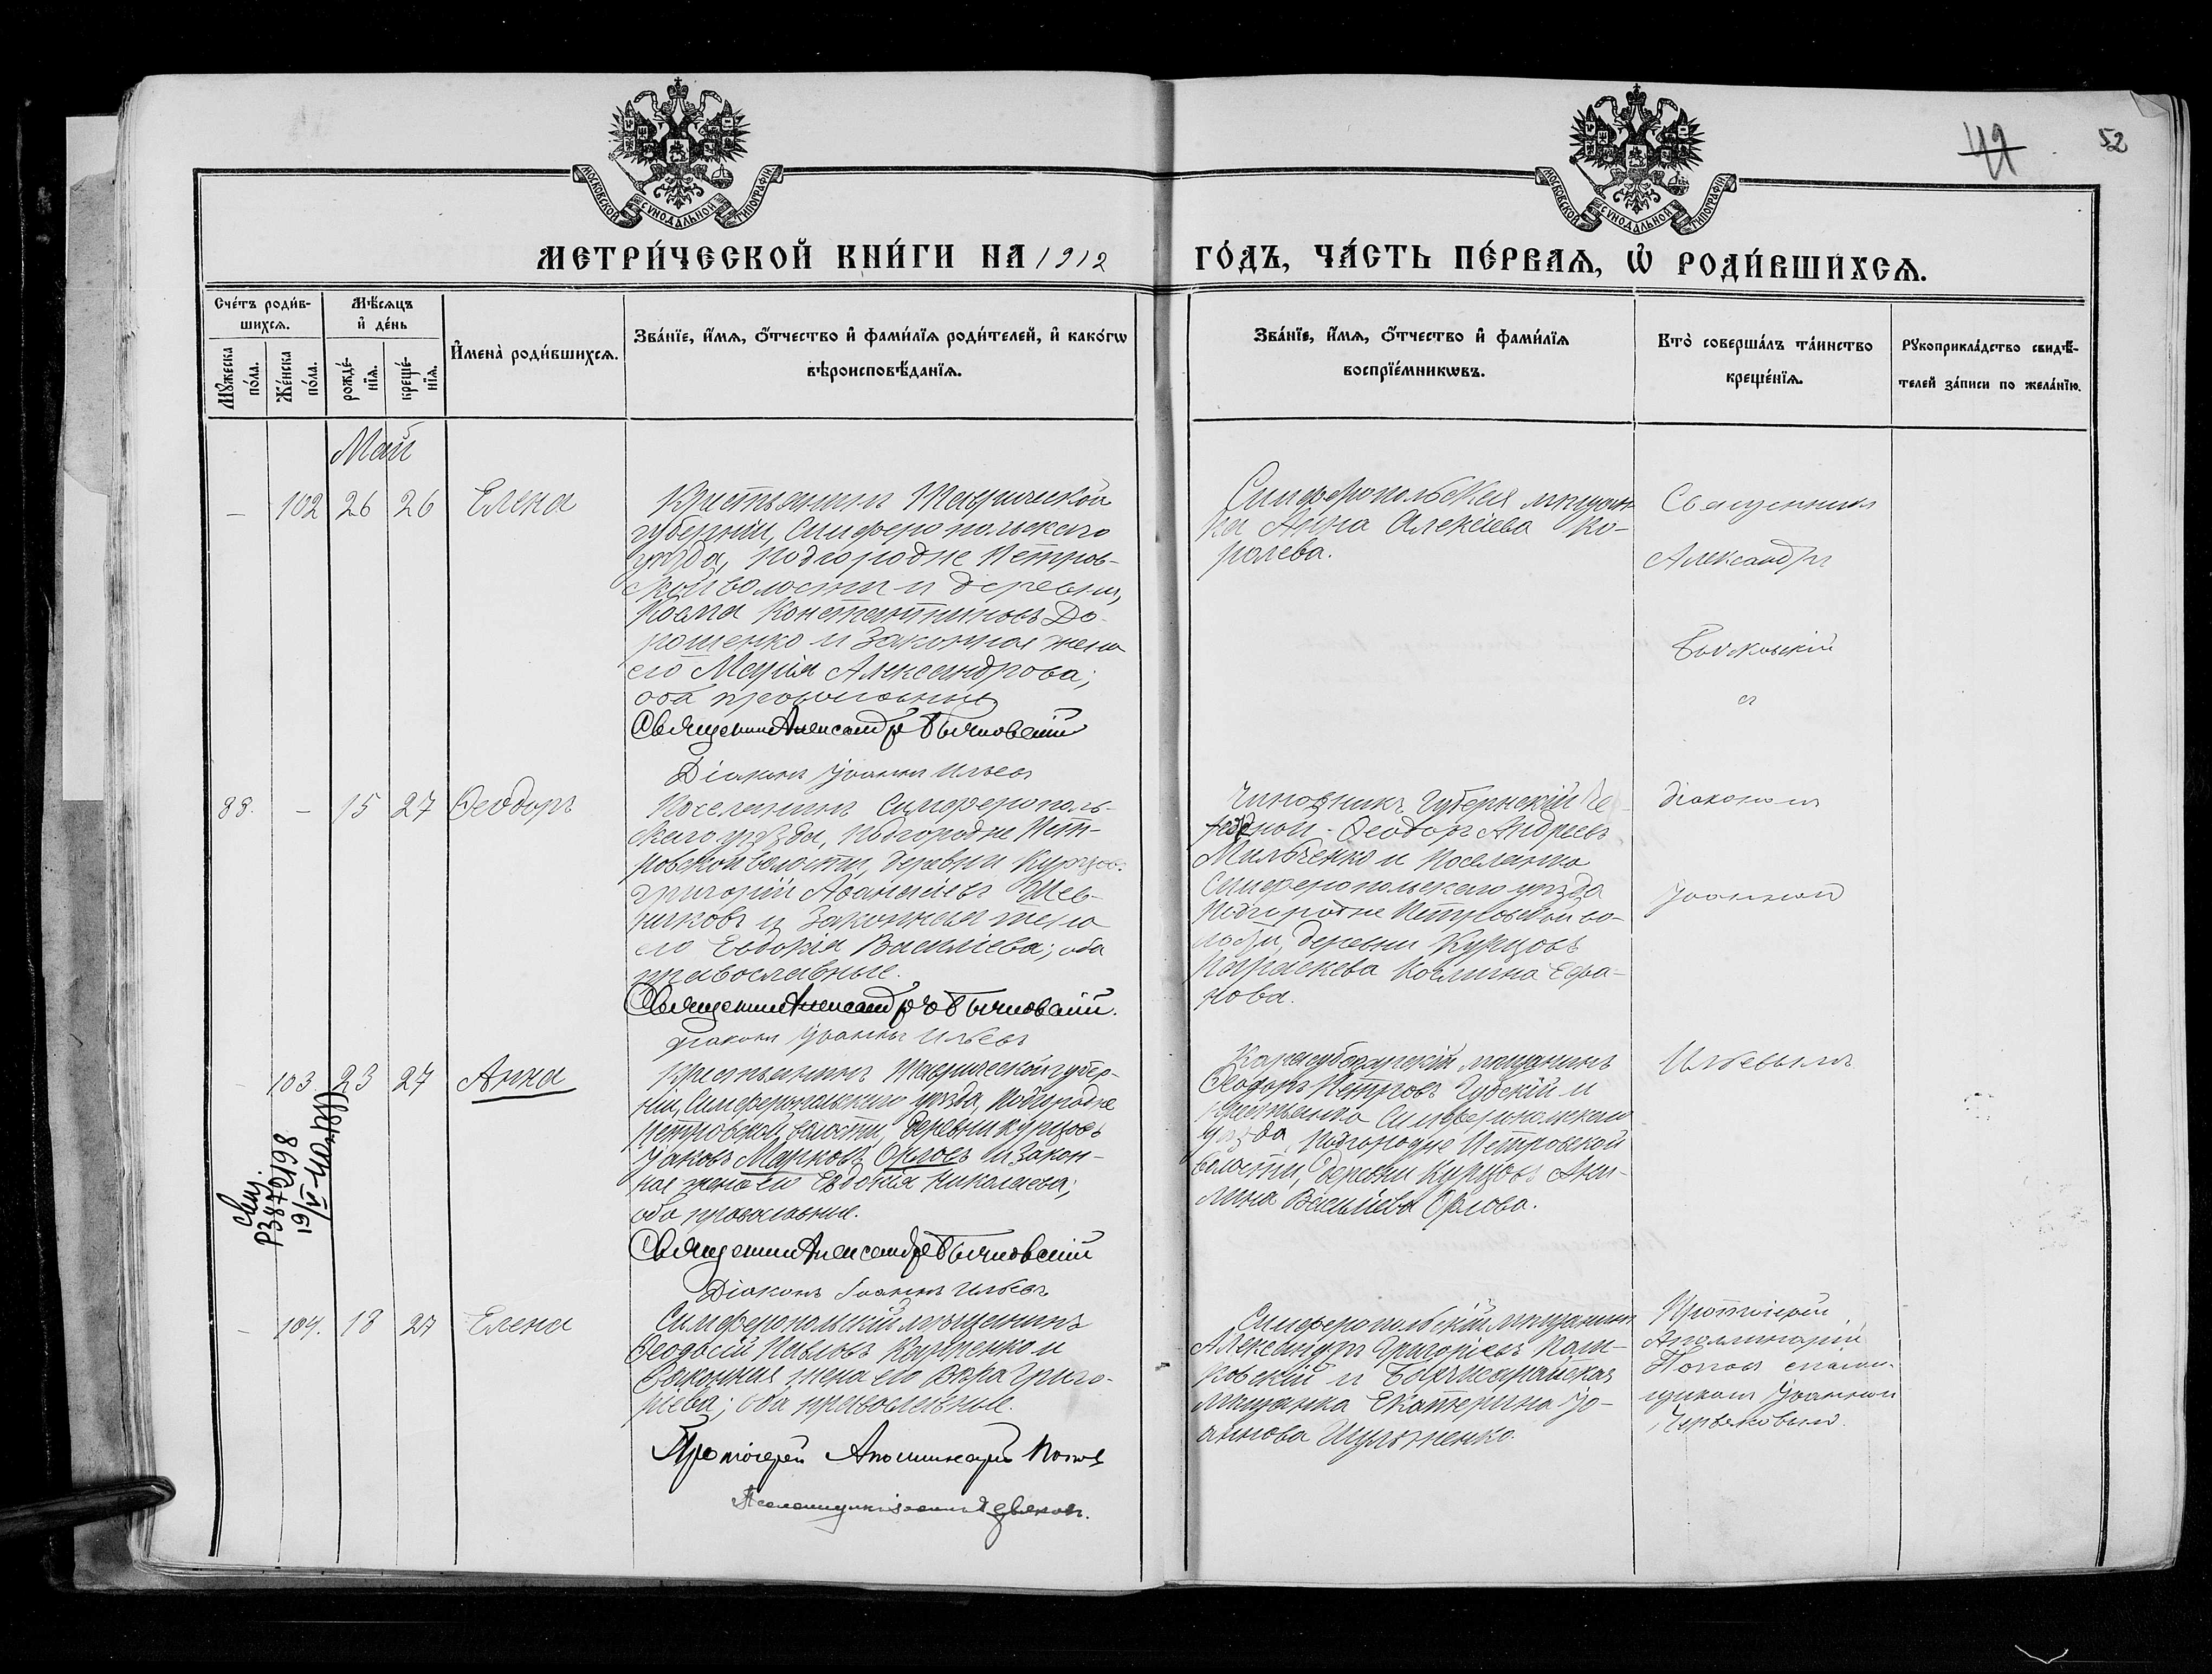 52
МОСКОВСКОЙ СѴНОДАЛЬНОЙ ТИПОГРАФІИ
МОСКОВСКОЙ СѴНОДАЛЬНОЙ ТИПОГРАФІИ
МЕТРИ́ЧЕСКОЙ КНИ́ГИ НА 1912 ГО́ДЪ, ЧА́СТЬ ПЕ́РВАѦ, Ѡ҆ РОДИ́ВШИХСѦ.
Сче́тъ роди́в-
шихсѧ.
Мѣ́сѧцъ
и҆ де́нь
Мꙋ́жеска
по́ла.
Же́нска
по́ла.
рожде́-
нїѧ.
креще́-
нїѧ.
И҆мена̀ роди́вшихсѧ.
Зва́нїе, и҆́мѧ, ѻ҆́тчество и҆ фами́лїѧ роди́телей, и҆ како́гѡ
вѣроисповѣ́данїѧ.
Зва́нїе, и҆́мѧ, ѻ҆́тчество и҆ фами́лїѧ
воспрїе́мникѡвъ.
Кто̀ соверша́лъ та́инство
креще́нїѧ.
Рꙋкоприкла́дство свидѣ́-
телей за́писи по жела́нїю.
Май
— 102 26 26 Елена
Крестьянинъ Таврической
губерніи, Симферопольскаго
уѣзда, Подгородне Петров-
ской волости и деревни,
Козма Константиновъ До-
рошенко и законная жена
его Марія Александрова;
оба православные
Священникъ Александръ Бычковскій
Діаконъ Іоаннъ Ильевъ
Симферопольская мѣщан-
ка Анна Алексіева Ко-
ролева.
Священникъ
Александръ
Бычковскій
съ
88. — 15 27 Ѳеодоръ
Поселянинъ Симферополь-
скаго уѣзда, Подгородне Пет-
ровской волости, деревни Курцовъ
Григорій Аѳанасіевъ Шев-
чиковъ и законная жена
его Евдокія Василіева; оба
православные.
Священникъ Александръ Бычковскій.
Діаконъ Іоаннъ Ильевъ
Чиновникъ Губернскій
Ѳеодоръ Андреевъ
Мильченко и поселянка
Симферопольскаго уѣзда
Подгородне Петровской во-
лости, деревни Курцовъ
Параскева Козмина
діакономъ
Іоанномъ
103. 23 27 Анна
Крестьянинъ Таврической губер-
ніи, Симферопольскаго уѣзда, Подгородне
Петровской волости, деревни Курцовъ
Іаковъ Марковъ Орловъ и закон-
ная жена его Евдокія Николаева;
оба православные.
Священникъ Александръ Бычковскій
Діаконъ Іоаннъ Ильевъ
Карасубазарскій мѣщанинъ
Ѳеодоръ Петровъ Губскій и
крестьянка Симферопольскаго
уѣзда, Подгородне Петровской
волости, деревни Курцовъ
Васильева Орлова.
Ильевымъ
— 104. 18 27 Елена
Симферопольскій мѣщанинъ
Ѳеодосій Павловъ и
законная жена его Вѣра Григо-
рьева; оба православные.
Протоіерей Аполлинарій Поповъ
Симферопольскій мѣщанинъ
Александръ Григорьевъ
и Бахчисарайская
мѣщанка Екатерина Іо-
аннова
Протоіерей
Аполлинарій
Поповъ
Іоанномъ